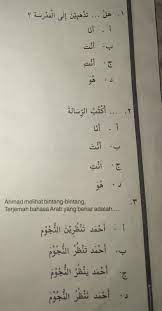 ١. هَلْ ... تَذْهَبِيْنَ إِلَى الْمَدْرَسَةِ ؟
أ. أَنَا
ب. أَنْتَ
ج. أَنْتِ
د. هُوَ
٢. ... أَكْتُبُ الرِّسَالَةَ
أ. أَنَا
ب. أَنْتَ
ج. أَنْتِ
د. هُوَ
٣.
Ahmad melihat bintang-bintang,
Terjemah bahasa Arab yang benar adalah....
أ. أَحْمَد تَنْظُرِيْنَ النُّجُوْمَ
ب. أَحْمَد تَنْظُرُ النُّجُوْمَ
ج. أَحْمَد يَنْظُرُ النُّجُوْمَ
د. أَحْمَد نَنْظُرُ النُّجُوْمَ